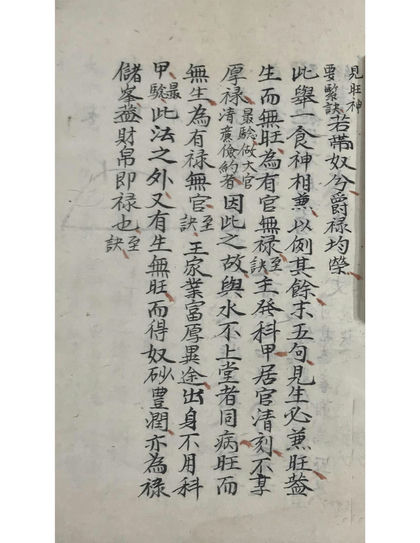 見旺神
要緊訣若帶奴兮爵禄均榮
此舉一食神相兼以例其餘末五句見生必兼旺蓋
生而無旺為有官無禄至訣主發科甲居官清刻不享
厚禄最驗做大官清廣儉約者因此之故與水不上堂者同病旺而
無生為有禄無官至訣主家業富厚異途出身不用科
甲最驗此法之外又有生無旺而得奴砂豐潤亦為禄
儲峯蓋財帛即禄也至訣